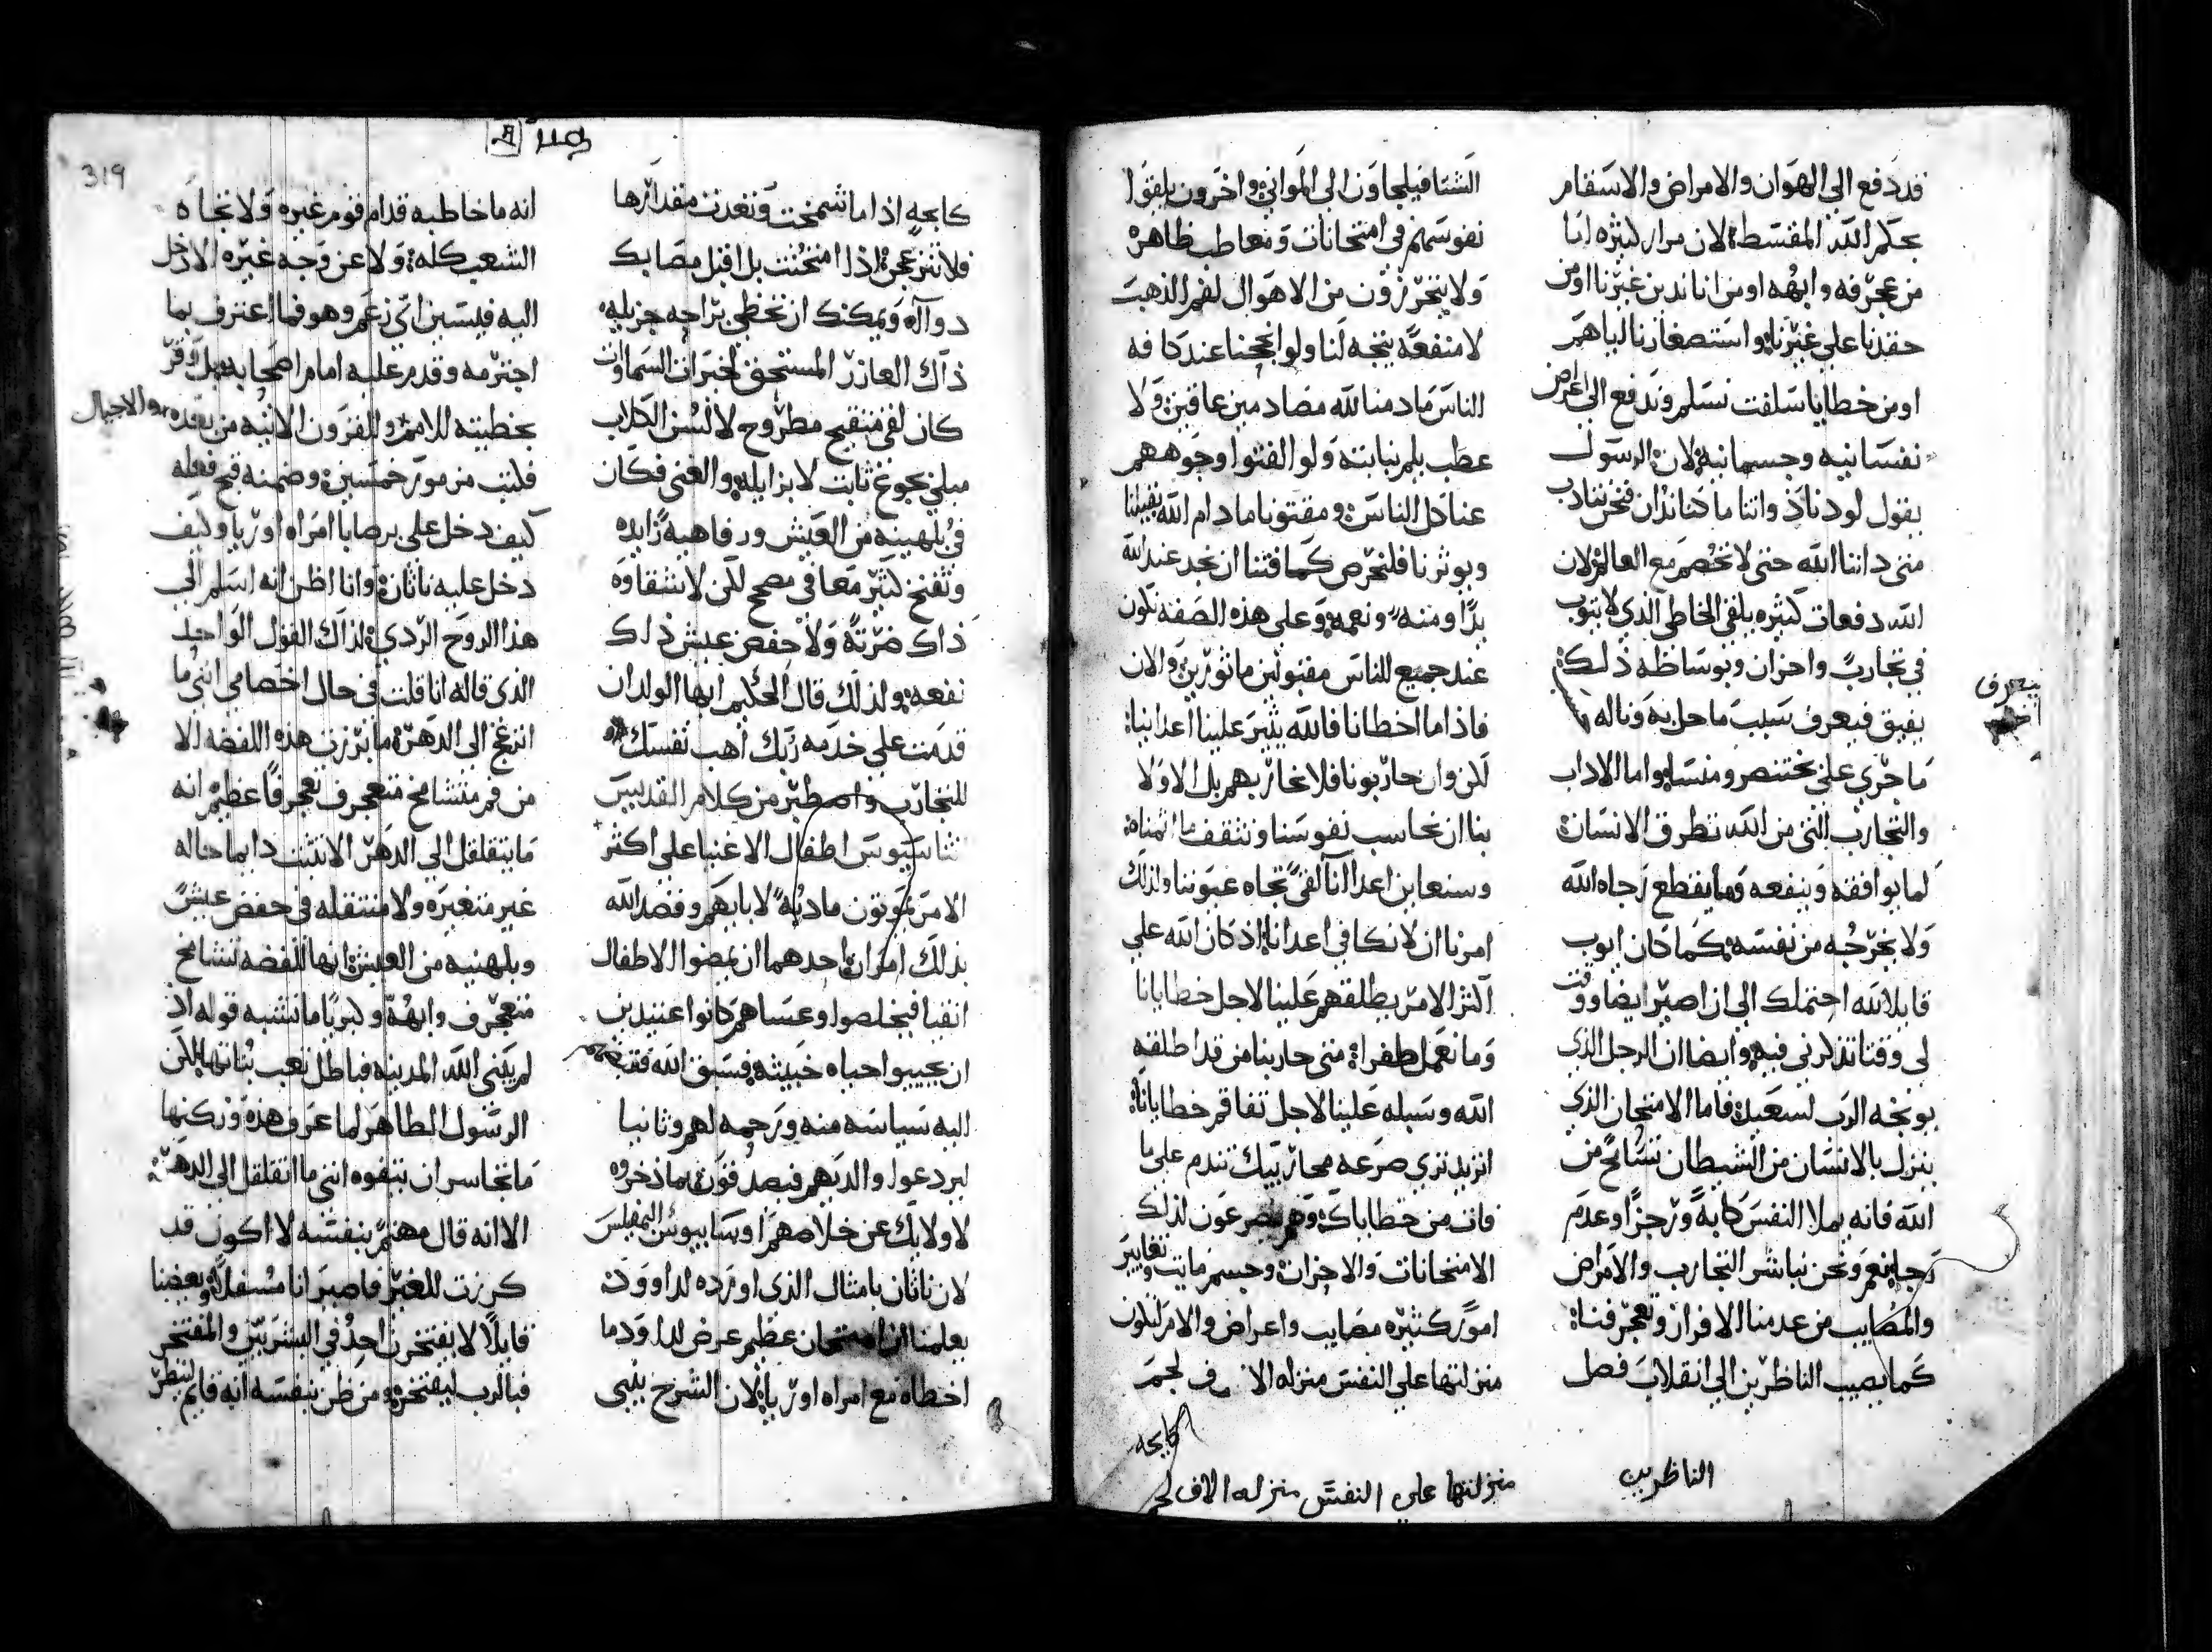 قد دفع الي الهوان والامراض والاسقام
بحكم الله المقسط لان مرار كثيره انا
من عجرفه وابهه او من اناندين غيرنا او من
حقدنا علي غيرنا واستصغارنا اياهم
او من خطايا سلفت نسلم وندفع الي اعراض
نفسانيه وجسمانيه لان الرسول
يقول لو دنا ذواتنا ما كنا ندان فنحن نتادب
متي داننا الله حتي لا نخصم مع العالم لان
الله دفعات كثيره يلقي الخاطي الذي لا يتوب
في تجارب واحزان وبوساطه ذلك
يفيق فيعرف سبب ما حل به وناله
ما جري علي بختنصر ومنسا واما الاداب
والتجارب التي من الله تطرق الانسان
لما يوافقه وينفعه وما يقطع رجاه الله
ولا يخرجه من نفسه كما كان ايوب
قايلا لله احتملك الي ان اصبر ايضا ووقت
لي وقتا تذكرني فيه وايضا ان الرجل الذي
يوبخه الرب لسعيد فاما الامتحان الذي
ينزل بالانسان من الشيطان تسامح من
الله فانه يملا النفس كابه ورجزا وعدم
رجا نعم ونحن نباشر التجارب والامراض
والمصايب من عدمنا الافراز وتعجرفنا
كما يصيب الناظرين الي انقلاب فصل
يتعرف
الناظرين
الشتا فيلجاون الي المواني واخرون يلقوا
نفوسهم في امتحانات ومعاطب ظاهره
ولا يتحرزون من الاهوال لفم الذهب
لا منفعه يتجه لنا ولو انججنا عند كافه
الناس ما دمنا لله مصادمين عاقين ولا
عطب يلم بنا بته ولو الفتوا وجوههم
عنا كل الناس ومقتونا ما دام الله يقبلنا
ويوثرنا فلنحرص كما فتنا ان نجد عند الله
بدا ومنه ونعمه وعلي هذه الصفه نكون
عند جميع الناس مقبولين ماثورين والان
فاذا ما اخطانا فالله يثير علينا اعدانا
لكن وان حاربونا فلا نحاربهم بل الاولا
بنا ان نحاسب نفوسنا ونثقف ما اثمناه
وسنعاين اعدانا لقي تجاه عيوننا ولذلك
امرنا ان لا نكافي اعدانا اذ كان الله علي
اكثر الامر يطلقهم علينا لاجل خطايانا
وما نعمل ظفرا متي حاربنا من قد اطلقه
الله وسبله علينا لاجل تفاقم خطايانا
اتريد تري صرعه محاربيك تندم علي ما
فات من خطاياك وهم يصرعون لذلك
الامتحانات والاحزان وجسيم مايت وتغايير
امور كثيره مصايب واعراض والامر لتكون
منزلتها علي النفس منزله الا ف لجم
كابحه
منزلتها علي النفس منزله الاف لجم
319
كابحه اذا ما تشمخت وتعدت مقدارها
فلا تنزعجن اذا امتحنت بل اقبل مصابك
دوآه ويمكنك ان تحظي براجه جزيله
ذاك العازر المستحق لخيرات السماوات
كان لقي متقيح مطروح لالسن الكلاب
مبلي بجوع ثابت لا يزايله والغني فكان
في بلهنيه من العيش ورفاهيه زايده
وتفنخ كثير معافي مصحح لكن لا شقاوه
ذاك ضرته ولا خفض عيش ذلك
نفعه ولذلك قال الحكيم ايها الولد ان
قدمت علي خدمه ربك اهب نفسك
للتجارب واصطبر من كلام القديس
اثناسيوس اطفال الاغنيا علي اكثر
الامر يموتون ماديه لابايهم وقصد الله
بذلك امران احدهما ان يمضوا الاطفال
انقيا فيخلصوا وعساهم كانوا عتيدين
ان يحيبوا حياه خبيثه فسبق الله فضمهم
اليه سياسه منه ورحمه لهم وثانيا
ليردعوا والديهم فيصدقون بما ذخروه
لاولايك عن خلاصهم اوسابيوس البمفليس
لان ناثان بامثال الذي اورده لداوود
يعلمنا ان امتحان عظيم عرض لداود ما
اخطاه مع امراه اوريا لان الشرح يلبي
انه ما خاطبه قدام قوم غيره ولا تجاه
الشعب كله ولا عن وجه غيره الا دخل
اليه فيسين اي زعم وهو فما اعترف بما
اجترمه وقدم عليه امام اصحابه بل وقر
بخطيته للامم والقرون الاتيه من بعده والاجيال
فكتب مزمور خمسين وضمنه قبح فعله
كيف دخل علي برصابا امراه اوريا وكيف
دخل عليه ناثان وانا اظن انه اسلم الي
هذا الروح الردي لذاك القول الواحد
الذي قاله انا قلت في حال اخصامي انني ما
انزعج الي الدهر ما برزت هذه اللفضه الا
من فم متشامخ متعجرف تعجرفا عظيم انه
ما يتقلقل الي الدهر الا تثبت دايما حاله
غير متغيره ولا منتقله في خفض عيش
وبلهنيه من العيش انها للفضه تشامخ
متعجرف وابهه وكبريا ما تشبه قوله اذ
لم يبني الله المدينه فباطل تعب بناتها لكن
الرسول الطاهر لما عرف هذه وركنها
ما تجاسر ان يتفوه انني ما اتقلقل الي الدهر
الا انه قال مهتم بنفسه لا اكون قد
كرزت للغير فاصير انا مسفلا وبعضنا
قايلا لا يفتخرن احد في البشريين والمفتخر
فبالرب ليفتخر ومن ظن بنفسه انه قايم لينظر